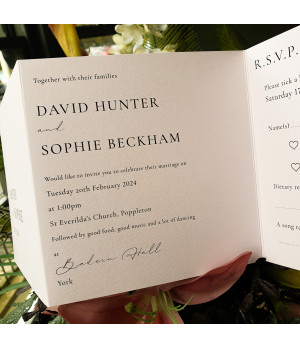 Together with their families
DAVID HUNTER
and
SOPHIE BECKHAM
Would like to invite you to celebrate their marriage on
Tuesday 20th February 2024
at 1:00pm
St Everilda's Church, Poppleton
Followed by good food, good music and a lot of dancing
at
Hall
York
R.S.V.P.
Please tick a
Saturday 17
Name(s)
Dietary re
A song to